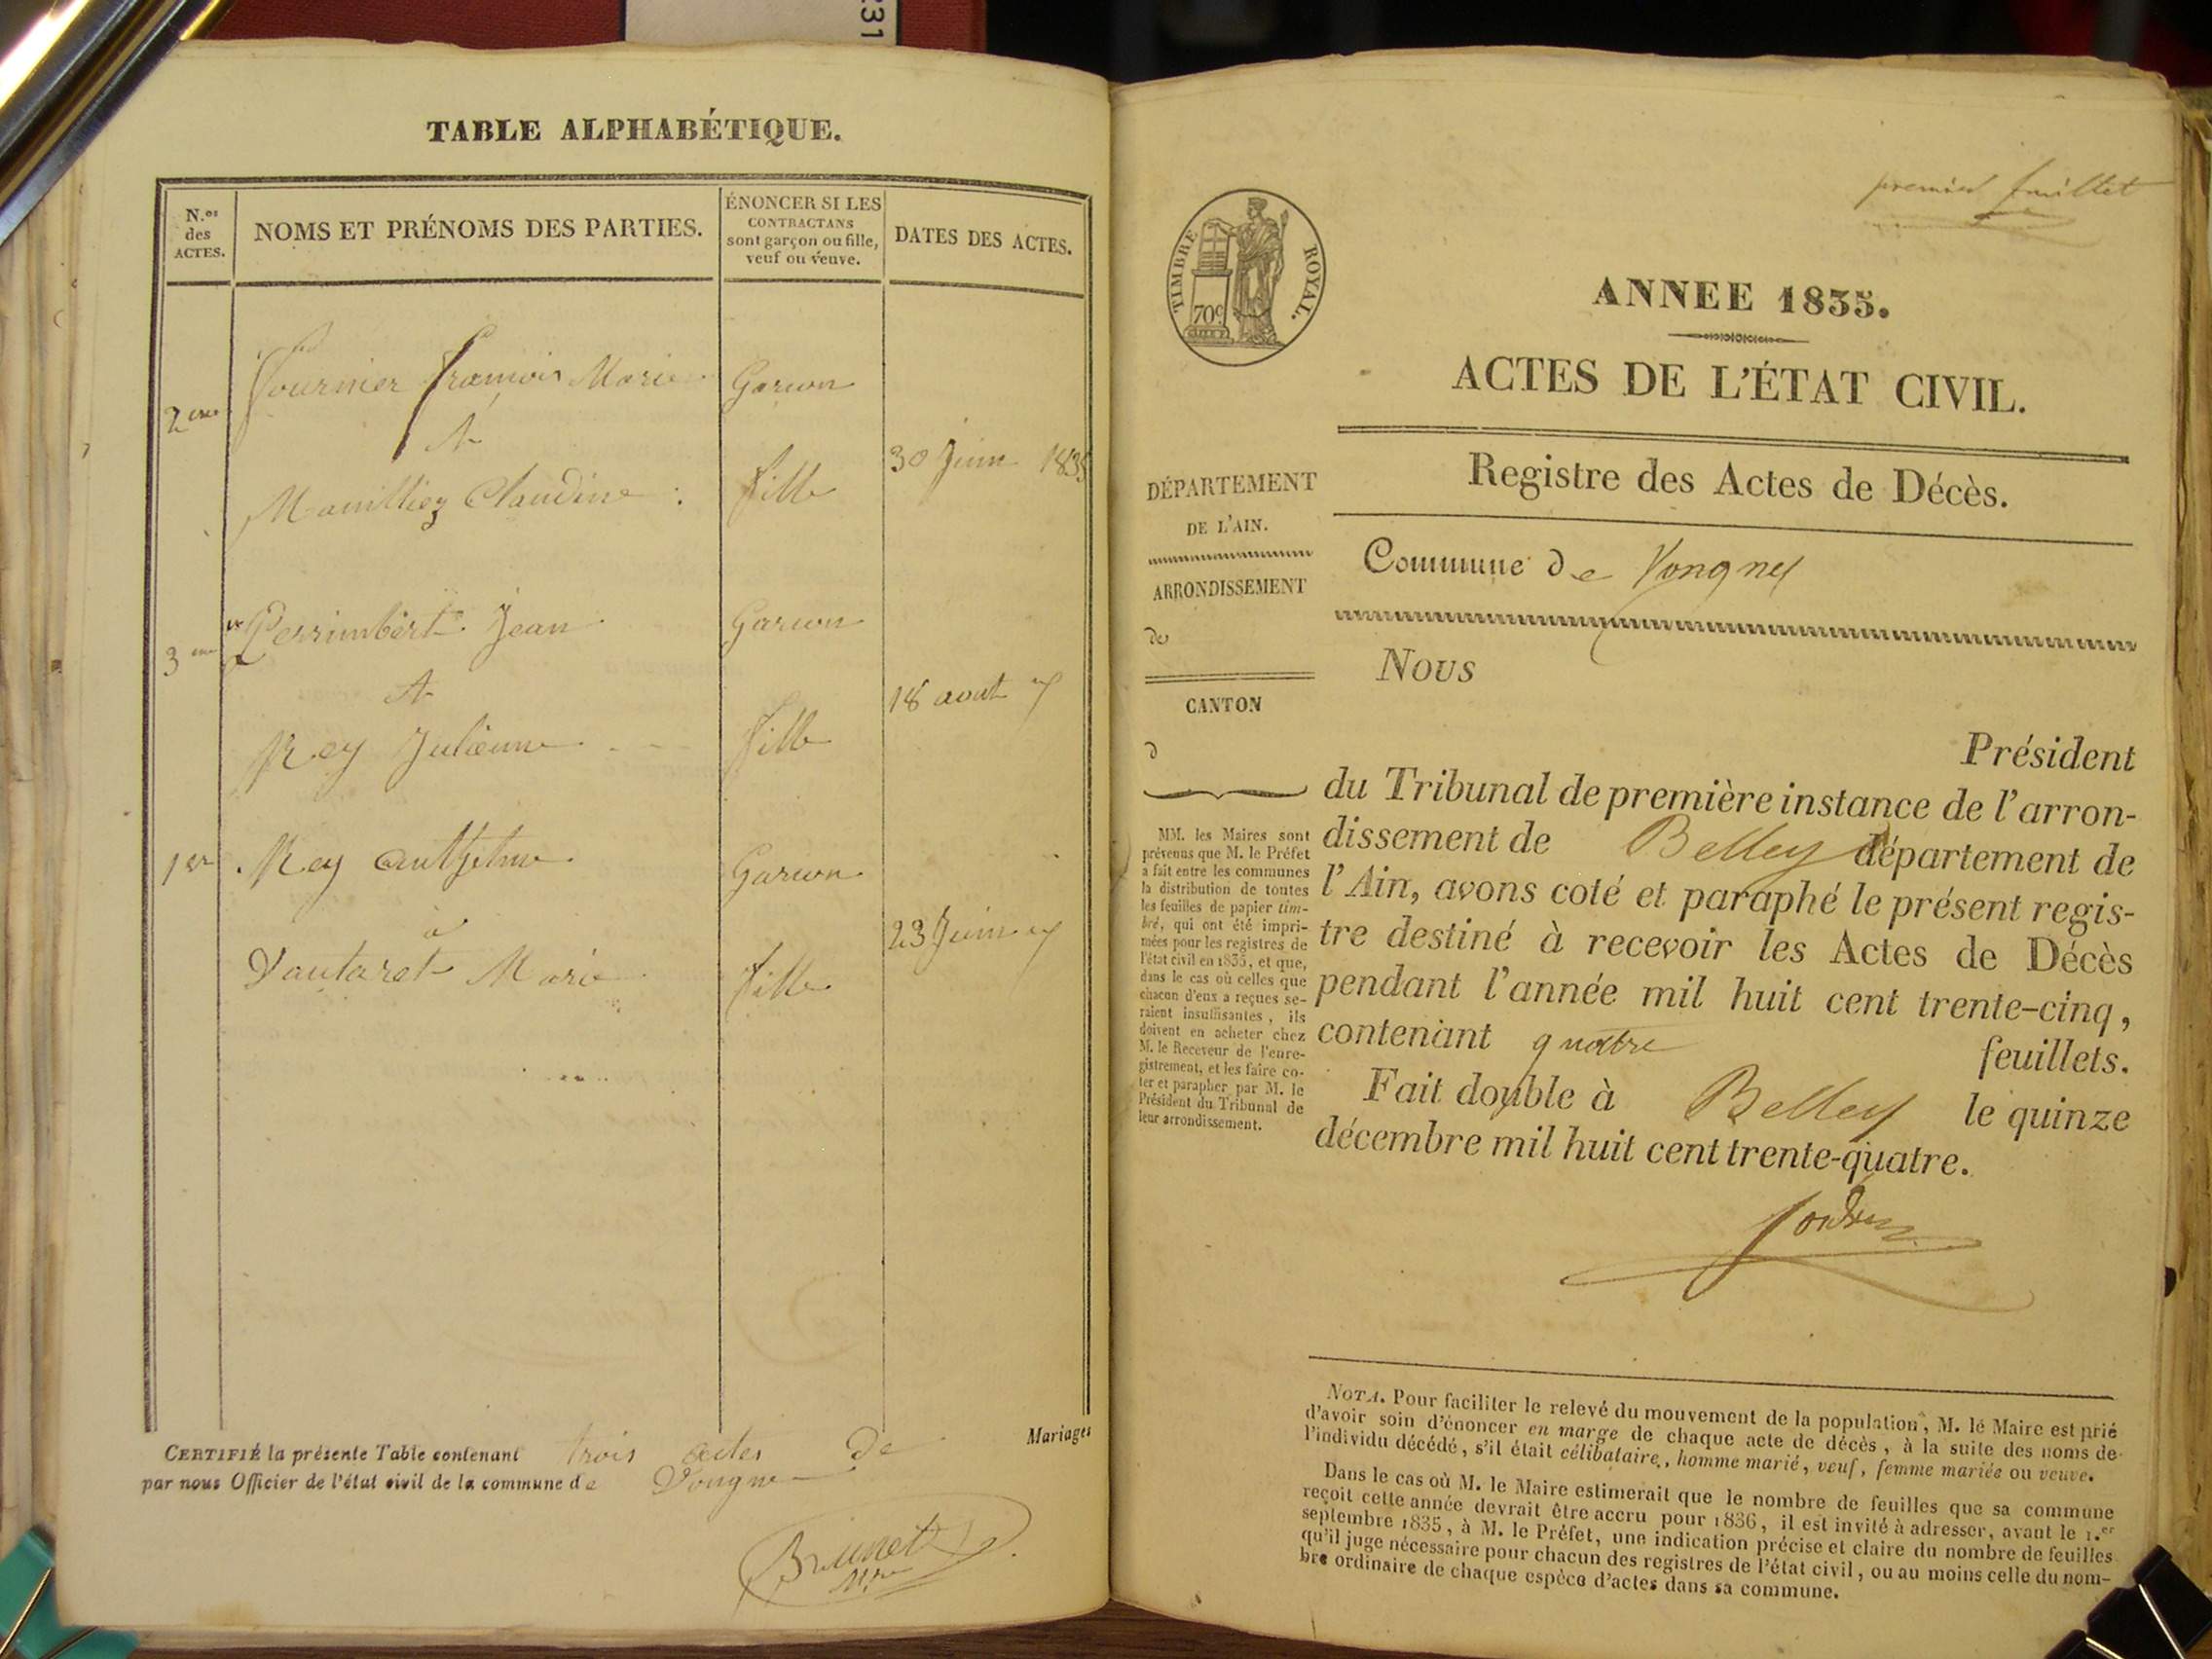 231
TABLE ALPHABÉTIQUE.
N.os
des
ACTES.
NOMS ET PRÉNOMS DES PARTIES.
ÉNONCER SI LES
CONTRACTANS
sont garçon ou fille,
veuf ou veuve.
DATES DES ACTES.
Fournier françois Marie Garçon
2eme
A
30 Juin 1835
Mauilliez Claudine fille
Perrimbert Jean Garçon
3eme
A
18 aout
Rey Julienne fille
1er Rey anthelme Garçon
à
23 Juin
Vautaret Marie fille
CERTIFIÉ la présente Table contenant trois actes de Mariages
par nous Officier de l'état civil de la commune de Vongne
Brunet
Mre
premier feuillet
TIMBRE ROYAL.
70c
ANNEE 1835.
ACTES DE L'ÉTAT CIVIL.
Registre des Actes de Décès.
DÉPARTEMENT
DE L'AIN.
ARRONDISSEMENT
de
CANTON
d
MM. les Maires sont
prévenus que M. le Préfet
a fait entre les communes
la distribution de toutes
les feuilles de papier tim-
bré, qui ont été impri-
mées pour les registres de
l'état civil en 1835, et que,
dans le cas où celles que
chacun d'eux a reçues se-
raient insuffisantes, ils
doivent en acheter chez
M. le Receveur de l'enre-
gistrement, et les faire co-
ter et parapher par M. le
Président du Tribunal de
leur arrondissement.
Commune de Vongnes
Nous
Président
du Tribunal de première instance de l'arron-
dissement de Belley département de
l'Ain, avons coté et paraphé le présent regis-
tre destiné à recevoir les Actes de Décès
pendant l'année mil huit cent trente-cinq,
contenant quatre feuillets.
Fait double à Belley le quinze
décembre mil huit cent trente-quatre.
NOTA. Pour faciliter le relevé du mouvement de la population, M. le Maire est prié
d'avoir soin d'énoncer en marge de chaque acte de décès, à la suite des noms de
l'individu décédé, s'il était célibataire, homme marié, veuf, femme mariée ou veuve.
Dans le cas où M. le Maire estimerait que le nombre de feuilles que sa commune
reçoit cette année devrait être accru pour 1836, il est invité à adresser, avant le 1.er
septembre 1835, à M. le Préfet, une indication précise et claire du nombre de feuilles
qu'il juge nécessaire pour chacun des registres de l'état civil, ou au moins celle du nom-
bre ordinaire de chaque espèce d'actes dans sa commune.